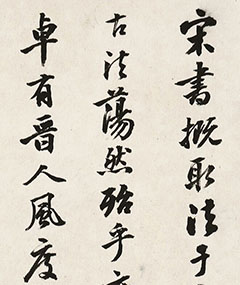 宋書概取法于
古法蕩然殆乎
卓有晉人風度